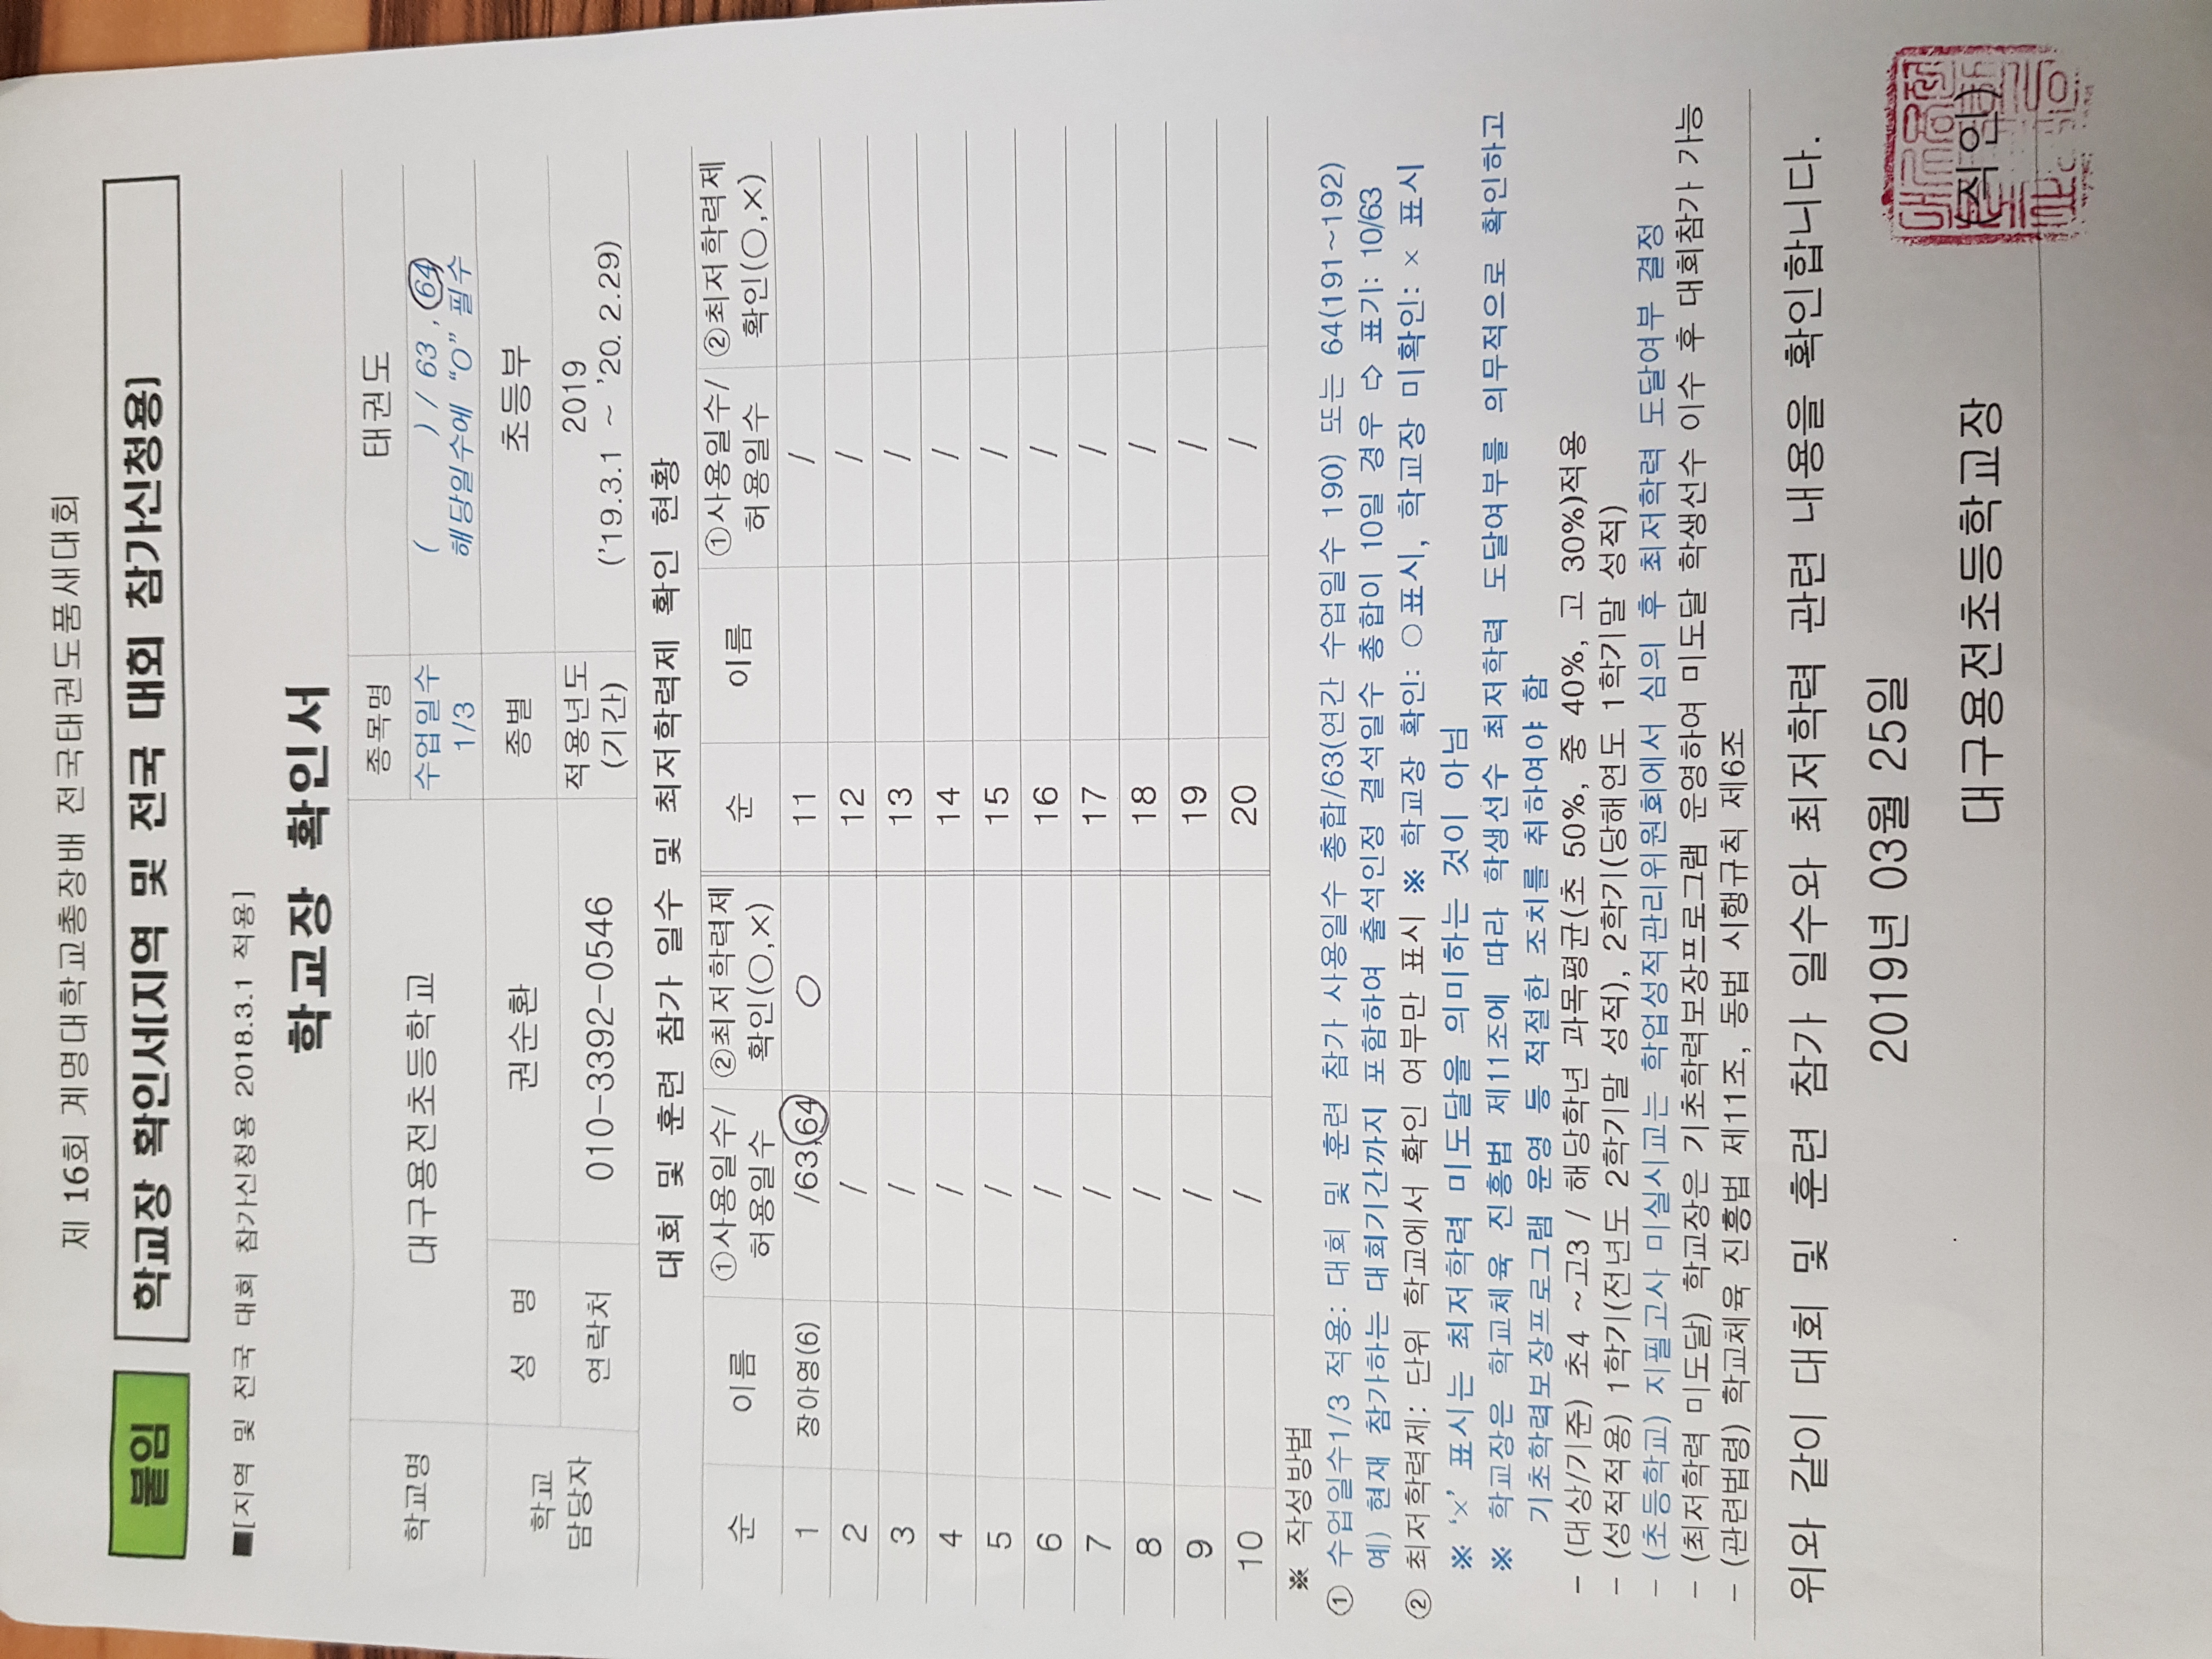 제 16회 계명대학교총장배 전국태권도품새대회
붙임 학교장 확인서[지역 및 전국 대회 참가신청용]
■[지역 및 전국 대회 참가신청용 2018.3.1 적용]
학교장 확인서
학교명 대구용전초등학교 종목명 태권도
수업일수 1/3 ( ) / 63 , 64
해당일수에 "O" 필수
학교 담당자 성 명 권순환 종별 초등부
연락처 010-3392-0546 적용년도 (기간) 2019
('19.3.1 ~ '20. 2.29)
대회 및 훈련 참가 일수 및 최저학력제 확인 현황
순 이름 ①사용일수/ 허용일수 ②최저학력제 확인(○,×) 순 이름 ①사용일수/ 허용일수 ②최저학력제 확인(○,×)
1 장아영(6) /63,64 ○ 11 /
2 / 12 /
3 / 13 /
4 / 14 /
5 / 15 /
6 / 16 /
7 / 17 /
8 / 18 /
9 / 19 /
10 / 20 /
※ 작성방법
① 수업일수1/3 적용: 대회 및 훈련 참가 사용일수 총합/63(연간 수업일수 190) 또는 64(191~192)
예) 현재 참가하는 대회기간까지 포함하여 출석인정 결석일수 총합이 10일 경우 ⇨ 표기: 10/63
② 최저학력제: 단위 학교에서 확인 여부만 표시 ※ 학교장 확인: ○표시, 학교장 미확인: × 표시
※ '×' 표시는 최저학력 미도달을 의미하는 것이 아님
※ 학교장은 학교체육 진흥법 제11조에 따라 학생선수 최저학력 도달여부를 의무적으로 확인하고
기초학력보장프로그램 운영 등 적절한 조치를 취하여야 함
- (대상/기준) 초4 ~고3 / 해당학년 과목평균(초 50%, 중 40%, 고 30%)적용
- (성적적용) 1학기(전년도 2학기말 성적), 2학기(당해연도 1학기말 성적)
- (초등학교) 지필고사 미실시교는 학업성적관리위원회에서 심의 후 최저학력 도달여부 결정
- (최저학력 미도달) 학교장은 기초학력보장프로그램 운영하여 미도달 학생선수 이수 후 대회참가 가능
- (관련법령) 학교체육 진흥법 제11조, 동법 시행규칙 제6조
위와 같이 대회 및 훈련 참가 일수와 최저학력 관련 내용을 확인합니다.
2019년 03월 25일
대구용전초등학교장 (직인)